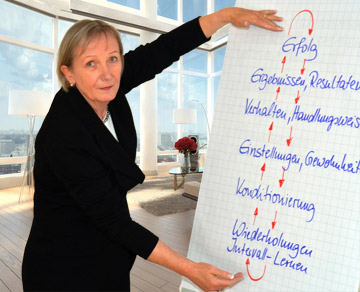 Erfolg
Ergebnissen, Resultaten
Verhalten, Handlungsweis
Einstellungen, Gewohnheit
Konditionierung
Wiederholungen
Intervall-Lernen